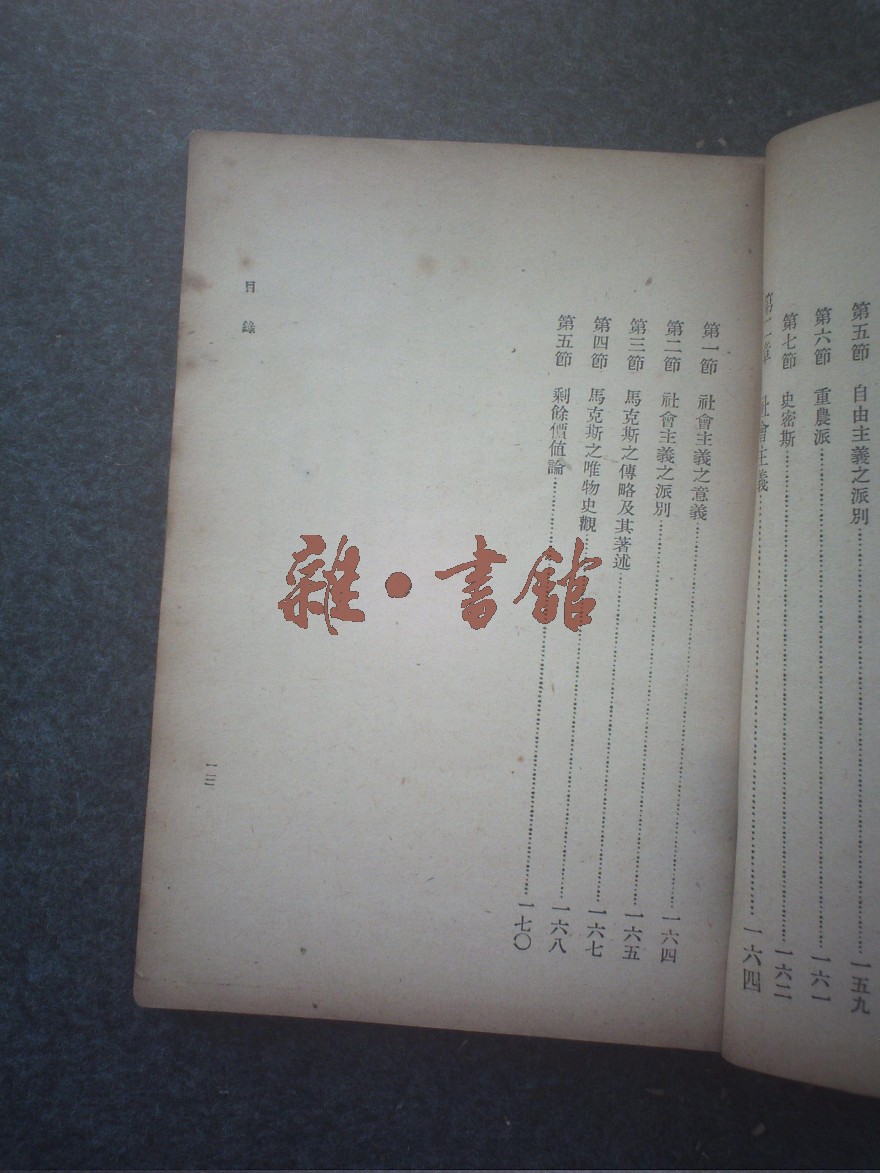 第五節 自由主義之派別……一五九
第六節 重農派……一六一
第七節 史密斯……一六二
第二章 社會主義……一六四
第一節 社會主義之意義……一六四
第二節 社會主義之派別……一六五
第三節 馬克斯之傳略及其著述……一六七
第四節 馬克斯之唯物史觀……一六八
第五節 剩餘價值論……一七〇
目錄
雜·書館